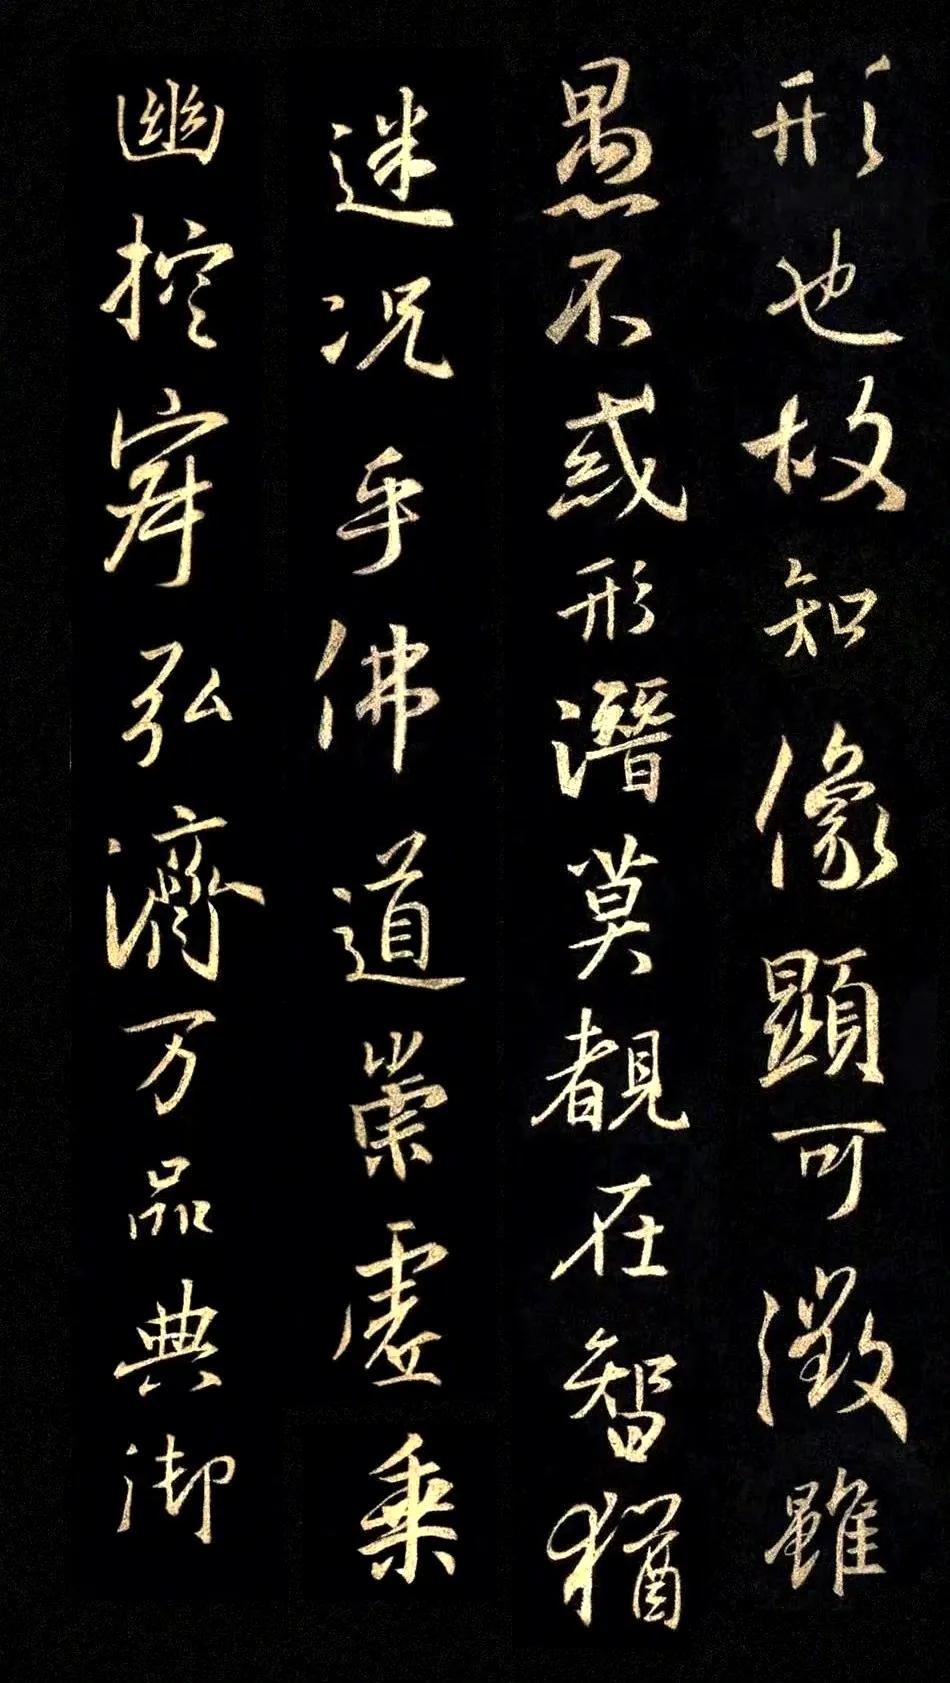 形也故知像顯可徵雖
愚不惑形潛莫覩在智猶
迷况乎佛道崇虛乗
幽控寂弘濟万品典御